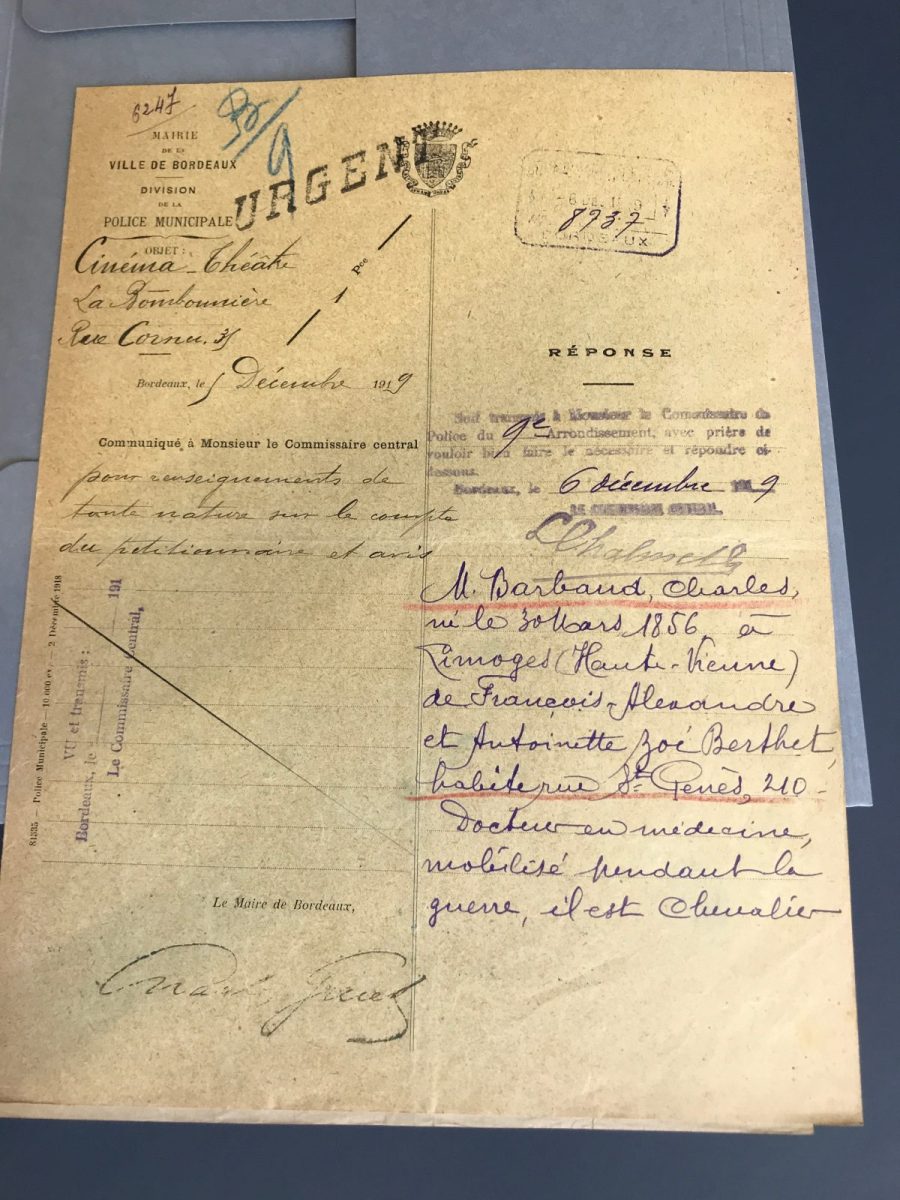 6247
Br/9
MAIRIE
DE LA
VILLE DE BORDEAUX
DIVISION
DE LA
POLICE MUNICIPALE
URGENT
OBJET :
Cinéma-Théâtre
La Bombonnière
Rue Cornu. 35
1 Pce
Bordeaux, le 5 Décembre 1919
Communiqué à Monsieur le Commissaire central
pour renseignements de
toute nature sur le compte
du petitionnaire et avis
81335 — Police Municipale — 10.000 ex. — 2 Décembre 1918
VU et transmis :
Bordeaux, le 191
Le Commissaire Central,
Le Maire de Bordeaux,
8737
BORDEAUX
RÉPONSE
Soit transmis à Monsieur le Commissaire de
Police du 9e Arrondissement, avec prière de
vouloir bien faire le nécessaire et répondre ci-
dessous.
Bordeaux, le 6 décembre 1919
LE COMMISSAIRE CENTRAL,
M. Barbaud, Charles,
né le 30 Mars 1856 à
Limoges (Haute-Vienne)
de François-Alexandre
et Antoinette Zoé Berthet,
habite rue St Genès, 210-
Docteur en médecine,
mobilisé pendant la
guerre, il est Chevalier